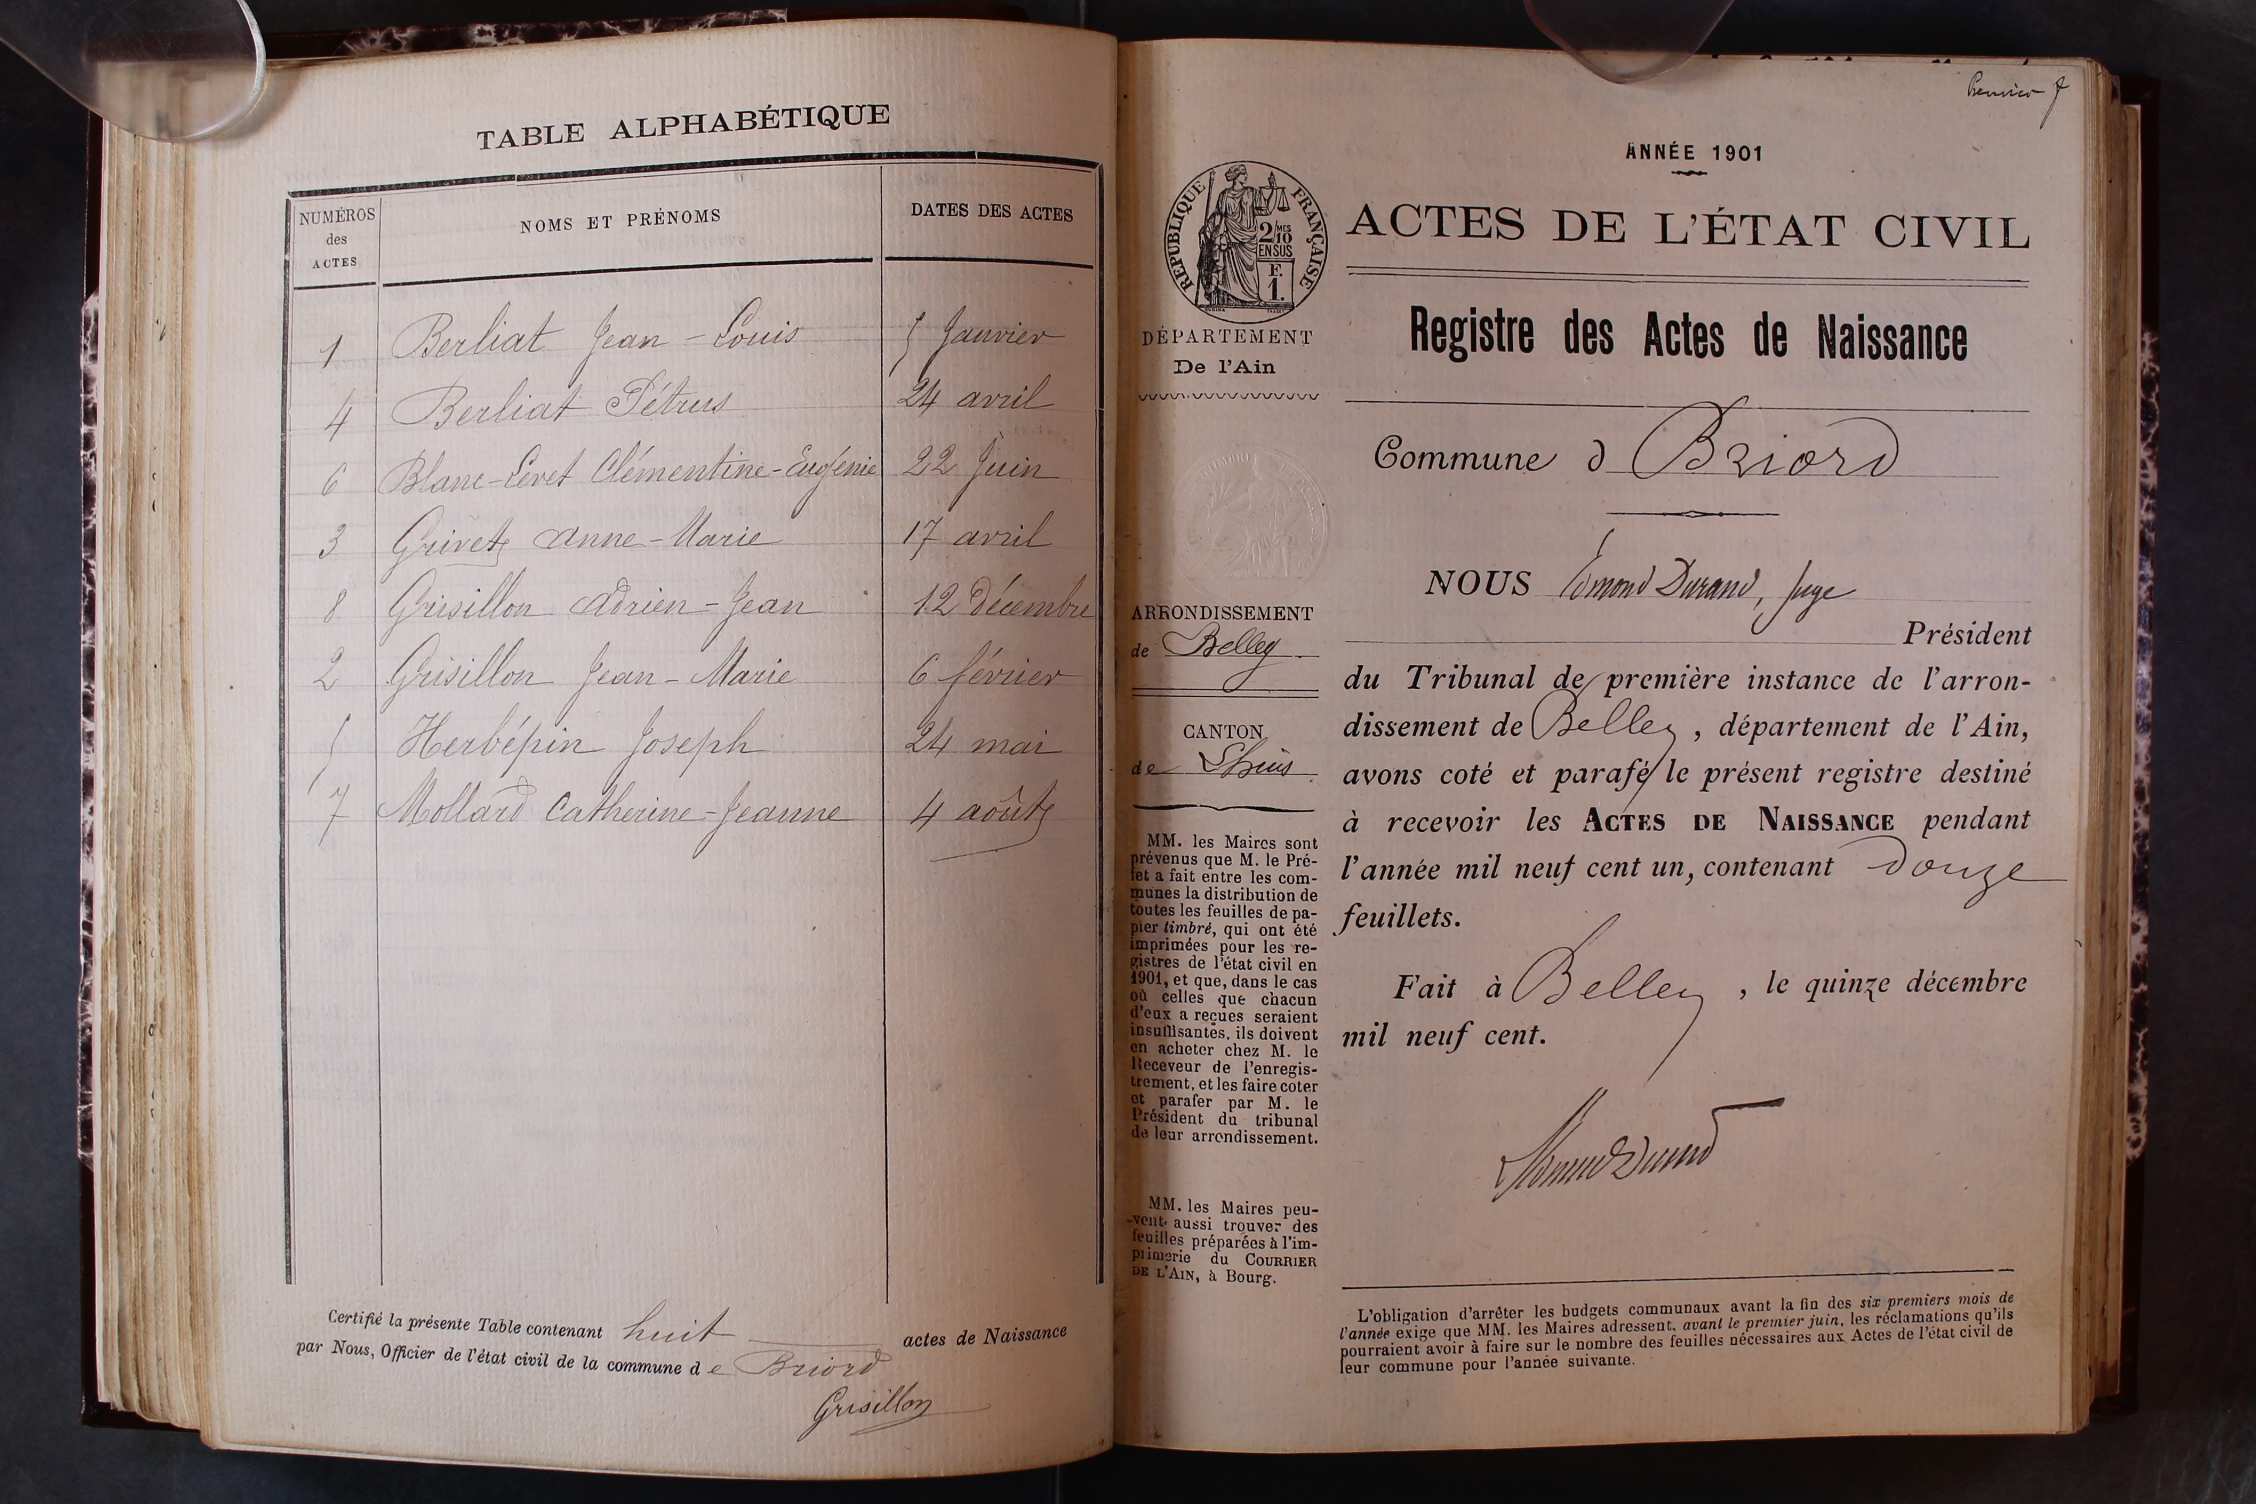 TABLE ALPHABÉTIQUE
NUMÉROS des ACTES
NOMS ET PRÉNOMS
DATES DES ACTES
1 Berliat Jean-Louis 5 Janvier
4 Berliat Pétrus 24 avril
6 Blanc-Levet Clémentine-Eugénie 22 Juin
3 Grivet Anne-Marie 17 avril
8 Grisillon Adrien-Jean 12 Décembre
2 Grisillon Jean-Marie 6 février
5 Herbépin Joseph 24 mai
7 Mollard Catherine-Jeanne 4 août
Certifié la présente Table contenant huit actes de Naissance
par Nous, Officier de l'état civil de la commune de Briord
Grisillon
Premier f
ANNÉE 1901
RÉPUBLIQUE FRANÇAISE
2/10
MES
EN SUS
F.
1.
DÉPARTEMENT
De l'Ain
ARRONDISSEMENT
de Belley
CANTON
de Lhuis
MM. les Maires sont
prévenus que M. le Pré-
fet a fait entre les com-
munes la distribution de
toutes les feuilles de pa-
pier timbré, qui ont été
imprimées pour les re-
gistres de l'état civil en
1901, et que, dans le cas
où celles que chacun
d'eux a reçues seraient
insuffisantes, ils doivent
en acheter chez M. le
Receveur de l'enregis-
trement, et les faire coter
et parafer par M. le
Président du tribunal
de leur arrondissement.
MM. les Maires peu-
vent aussi trouver des
feuilles préparées à l'im-
primerie du COURRIER
DE L'AIN, à Bourg.
ACTES DE L'ÉTAT CIVIL
Registre des Actes de Naissance
Commune d Briord
NOUS Edmond Durand, Juge
Président
du Tribunal de première instance de l'arron-
dissement de Belley, département de l'Ain,
avons coté et parafé le présent registre destiné
à recevoir les ACTES DE NAISSANCE pendant
l'année mil neuf cent un, contenant douze
feuillets.
Fait à Belley, le quinze décembre
mil neuf cent.
Edmond Durand
L'obligation d'arrêter les budgets communaux avant la fin des six premiers mois de
l'année exige que MM. les Maires adressent, avant le premier juin, les réclamations qu'ils
pourraient avoir à faire sur le nombre des feuilles nécessaires aux Actes de l'état civil de
leur commune pour l'année suivante.